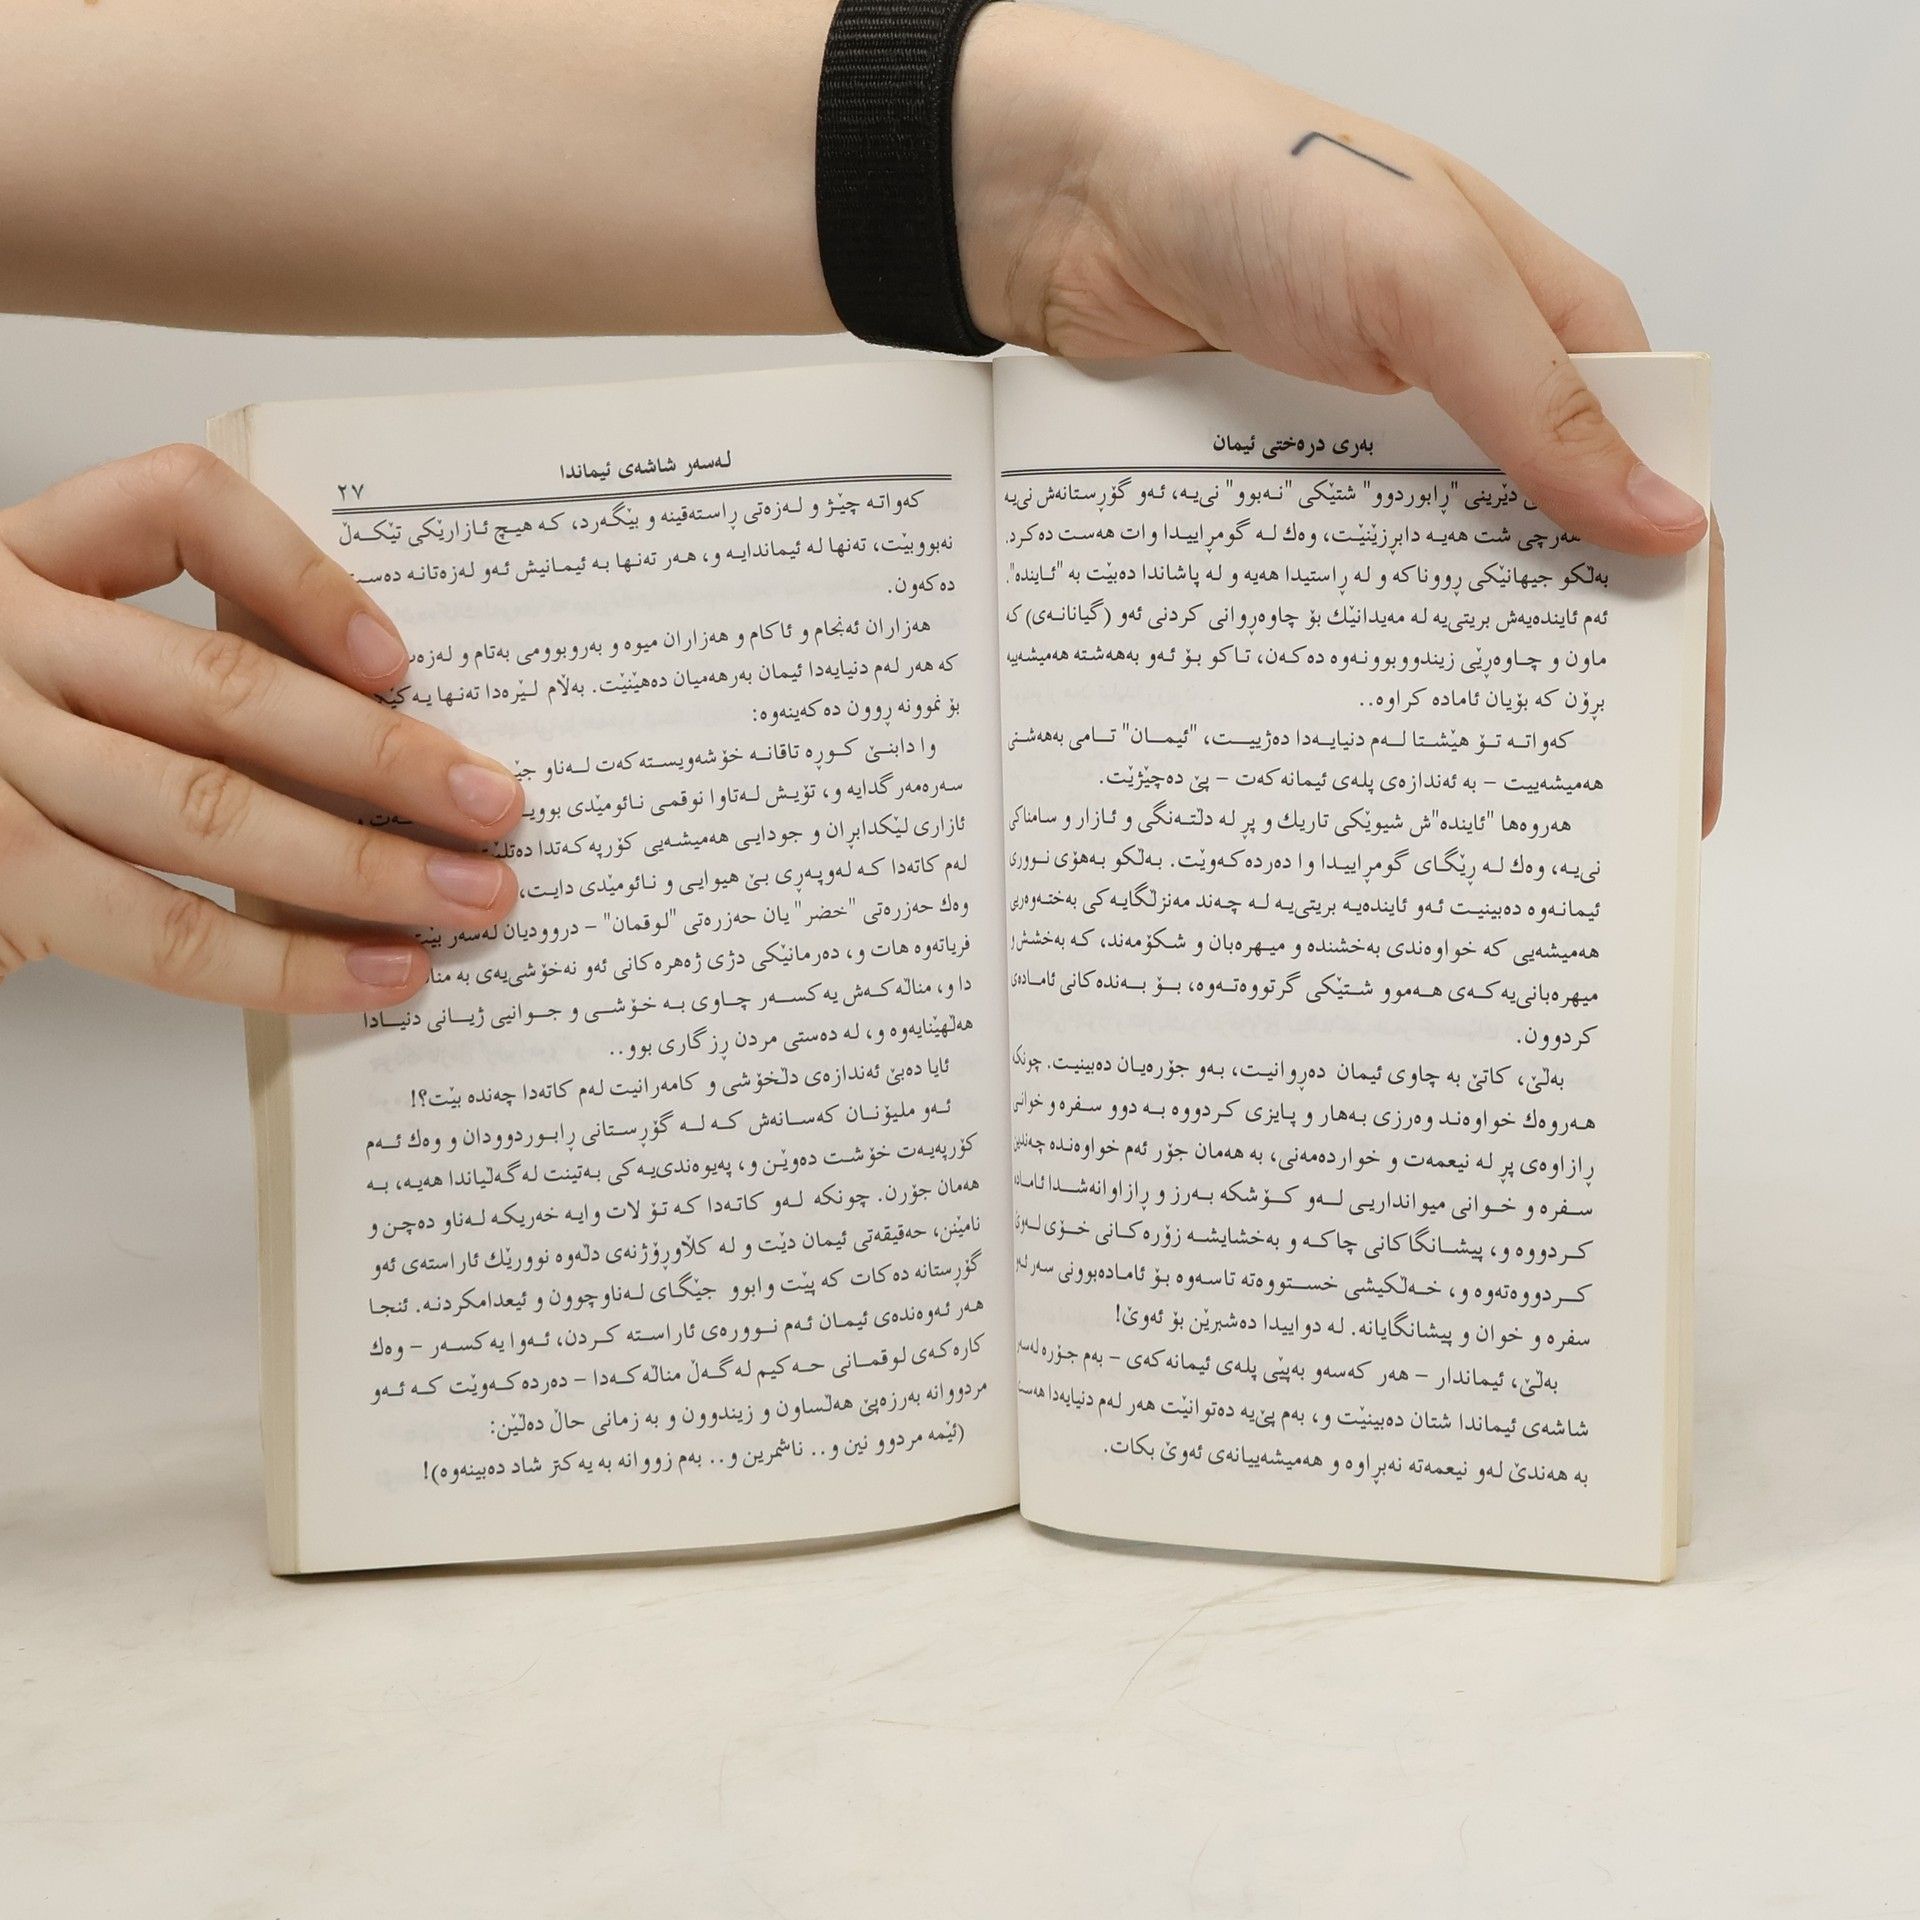 بەری درەختی ئیمان
دێرینی "ڕابوردوو" شتێکی "نـەبوو" نی‌یـە، ئـەو گۆڕستانەش نی‌یـە
هەرچی شت هەیـە دابڕزێنێـت، وەك لـە گومڕاییـدا وات هەست دەکرد.
بەڵکو جیهانێکی ڕووناکە و لە ڕاستیدا هەیە و لە پاشاندا دەبێت بە "ئـایندە".
ئەم ئایندەیەش بریتی‌یە لە مەیدانێك بۆ چاوەڕوانی کردنی ئەو (گیانانـەی) کە
ماون و چـاوەڕێی زیندووبوونـەوە دەکـەن، تـاکو بـۆ ئـەو بەهەشتە هەمیشەییە
بڕۆن کە بۆیان ئامادە کراوە..
کەواتـە تـۆ هێشـتا لـەم دنیایـەدا دەژییـت، "ئیمـان" تـامی بەهەشـتی
هەمیشەییت – بە ئەندازەی پلەی ئیمانەکەت – پێ دەچێژێت.
هەروەها "ئایندە"ش شیوێکی تاریك و پڕ لە دڵتـەنگی و ئـازار و سامناکی
نی‌یـە، وەك لـە ڕێگـای گومڕاییـدا وا دەردەکـەوێت. بـەڵکو بـەهۆی نـووری
ئیمانـەوە دەبینیـت ئـەو ئایندەیـە بریتی‌یـە لـە چـەند مەنزڵگایـەکی بەختـەوەریی
هەمیشەیی کە خواوەندی بەخشندە و میـهرەبان و شـکۆمەند، کـە بەخشش و
میهرەبانی‌یەکـەی هـەموو شـتێکی گرتووەتـەوە، بـۆ بـەندەکانی ئامـادەی
کردوون.
بەڵێ، کاتێ بە چاوی ئیمان دەڕوانیـت، بـەو جۆرەیـان دەبینیـت. چونکە
هـەروەك خواوەنـد وەرزی بـەهار و پـایزی کـردووە بـە دوو سـفرە و خوانی
ڕازاوەی پڕ لە نیعمەت و خواردەمەنی، بە هەمان جۆر ئەم خواوەندە چەندین
سـفرە و خـوانی میوانداریـی لـەو کـۆشکە بـەرز و ڕازاوانەشـدا ئامـادە
کـردووە و، پیشـانگاکانی چاکـە و بەخشایشـە زۆرەکـانی خـۆی لـەوێ
کـردووەتەوە و، خـەڵکیشی خسـتووەتە تاسـەوە بـۆ ئامـادەبوونی سەر لـەو
سفرە و خوان و پیشانگایانە. لە دواییدا دەشبرێن بۆ ئەوێ!
بەڵێ، ئیماندار – هەر کەسەو بەپێی پلەی ئیمانەکەی – بەم جـۆرە لەسەر
شاشەی ئیماندا شتان دەبینێت و، بەم پێ‌یە دەتوانێت هەر لەم دنیایەدا هەست
بە هەندێ لەو نیعمەتە نەبڕاوە و هەمیشەییانەی ئەوێ بکات.
لەسەر شاشەی ئیماندا
٢٧
کەواتـە چێـژ و لـەزەتی ڕاستەقینە و بێگـەرد، کـە هیـچ ئـازارێکی تێکـەڵ
نەبووبێت، تەنها لە ئیماندایـە و، هـەر تەنـها بە ئیمـانیش ئەو لەزەتانە دەست
دەکەون.
هەزاران ئەنجام و ئاکام و هەزاران میوە و بەروبوومی بەتام و
کە هەر لەم دنیایەدا ئیمان بەرهەمیان دەهێنێت. بەڵام لـێرەدا تەنـها
بۆ نموونە ڕوون دەکەینەوە:
وا دابنـێ کـوڕە تاقانـە خۆشەویسـتەکەت لـەناو
سـەرەمەرگدایە و، تۆیـش لـەتاوا نوقمـی نـائومێدی
ئازاری لێکدابڕان و جودایی هەمیشـەیی کۆرپەکەتدا
لەم کاتەدا کـە لـەوپـەڕی بـێ هیوایی و نـائومێدی دایـت،
وەك حەزرەتی "خضر" یان حەزرەتی "لوقمان" – دروودیان لەسەر بێت
فریاتەوە هات و، دەرمانێکی دژی ژەهرەکانی ئەو نەخۆشی‌یەی بە
دا و، مناڵەکـەش یەکسـەر چـاوی بـە خۆشـی و جـوانیی ژیـانی دنیـادا
هەڵهێنایەوە و، لە دەستی مردن ڕزگاری بوو..
ئایا دەبێ ئەندازەی دڵخۆشی و کامەرانیت لەم کاتەدا چەندە بێت؟!
ئـەو ملیۆنـان کەسـانەش کـە لـە گۆڕسـتانی ڕابـوردوودان و وەك ئـەم
کۆرپەیـەت خۆشـت دەوێـن و، پەیوەندی‌یـەکی بـەتینت لەگـەڵیاندا هەیـە، بـە
هەمان جۆرن. چونکە لـەو کاتـەدا کـە تـۆ لات وایـە خەریکـە لـەناو دەچـن و
نامێنن، حەقیقەتی ئیمان دێت و لە کڵاوڕۆژنەی دڵەوە نوورێك ئاراستەی ئەو
گۆڕستانە دەکات کە پێت وابوو جێگـای لـەناوچوون و ئیعدامکردنـە. ئنجـا
هەر ئـەوەندەی ئیمـان ئـەم نـوورەی ئاراسـتە کـردن، ئـەوا یەکسـەر – وەك
کارەکـەی لوقمـانی حـەکیم لەگـەڵ مناڵـەکـەدا – دەردەکـەوێت کـە ئـەو
مردووانە بەرزەپێ هەڵساون و زیندوون و بە زمانی حاڵ دەڵێن:
(ئێمە مردوو نین و.. ناشمرین و.. بەم زووانە بە یەکتر شاد دەبینەوە)!